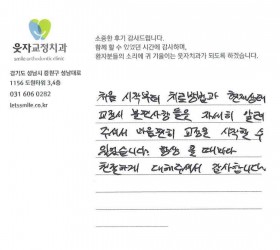 웃자교정치과
smile orthodontic clinic
경기도 성남시 중원구 성남대로
1156 도원타워 3,4층
031 606 0282
letssmile.co.kr
소중한 후기 감사드립니다.
함께 할 수 있었던 시간에 감사하며,
환자분들의 소리에 귀 기울이는 웃자치과가 되도록 하겠습니다.
처음 시작할때 치료방법과 현재상태
교정시 불편사항들을 자세히 알려
주셔서 마음편히 교정을 시작할 수
있었습니다. 항상 올 때마다
친절하게 대해주셔서 감사합니다.